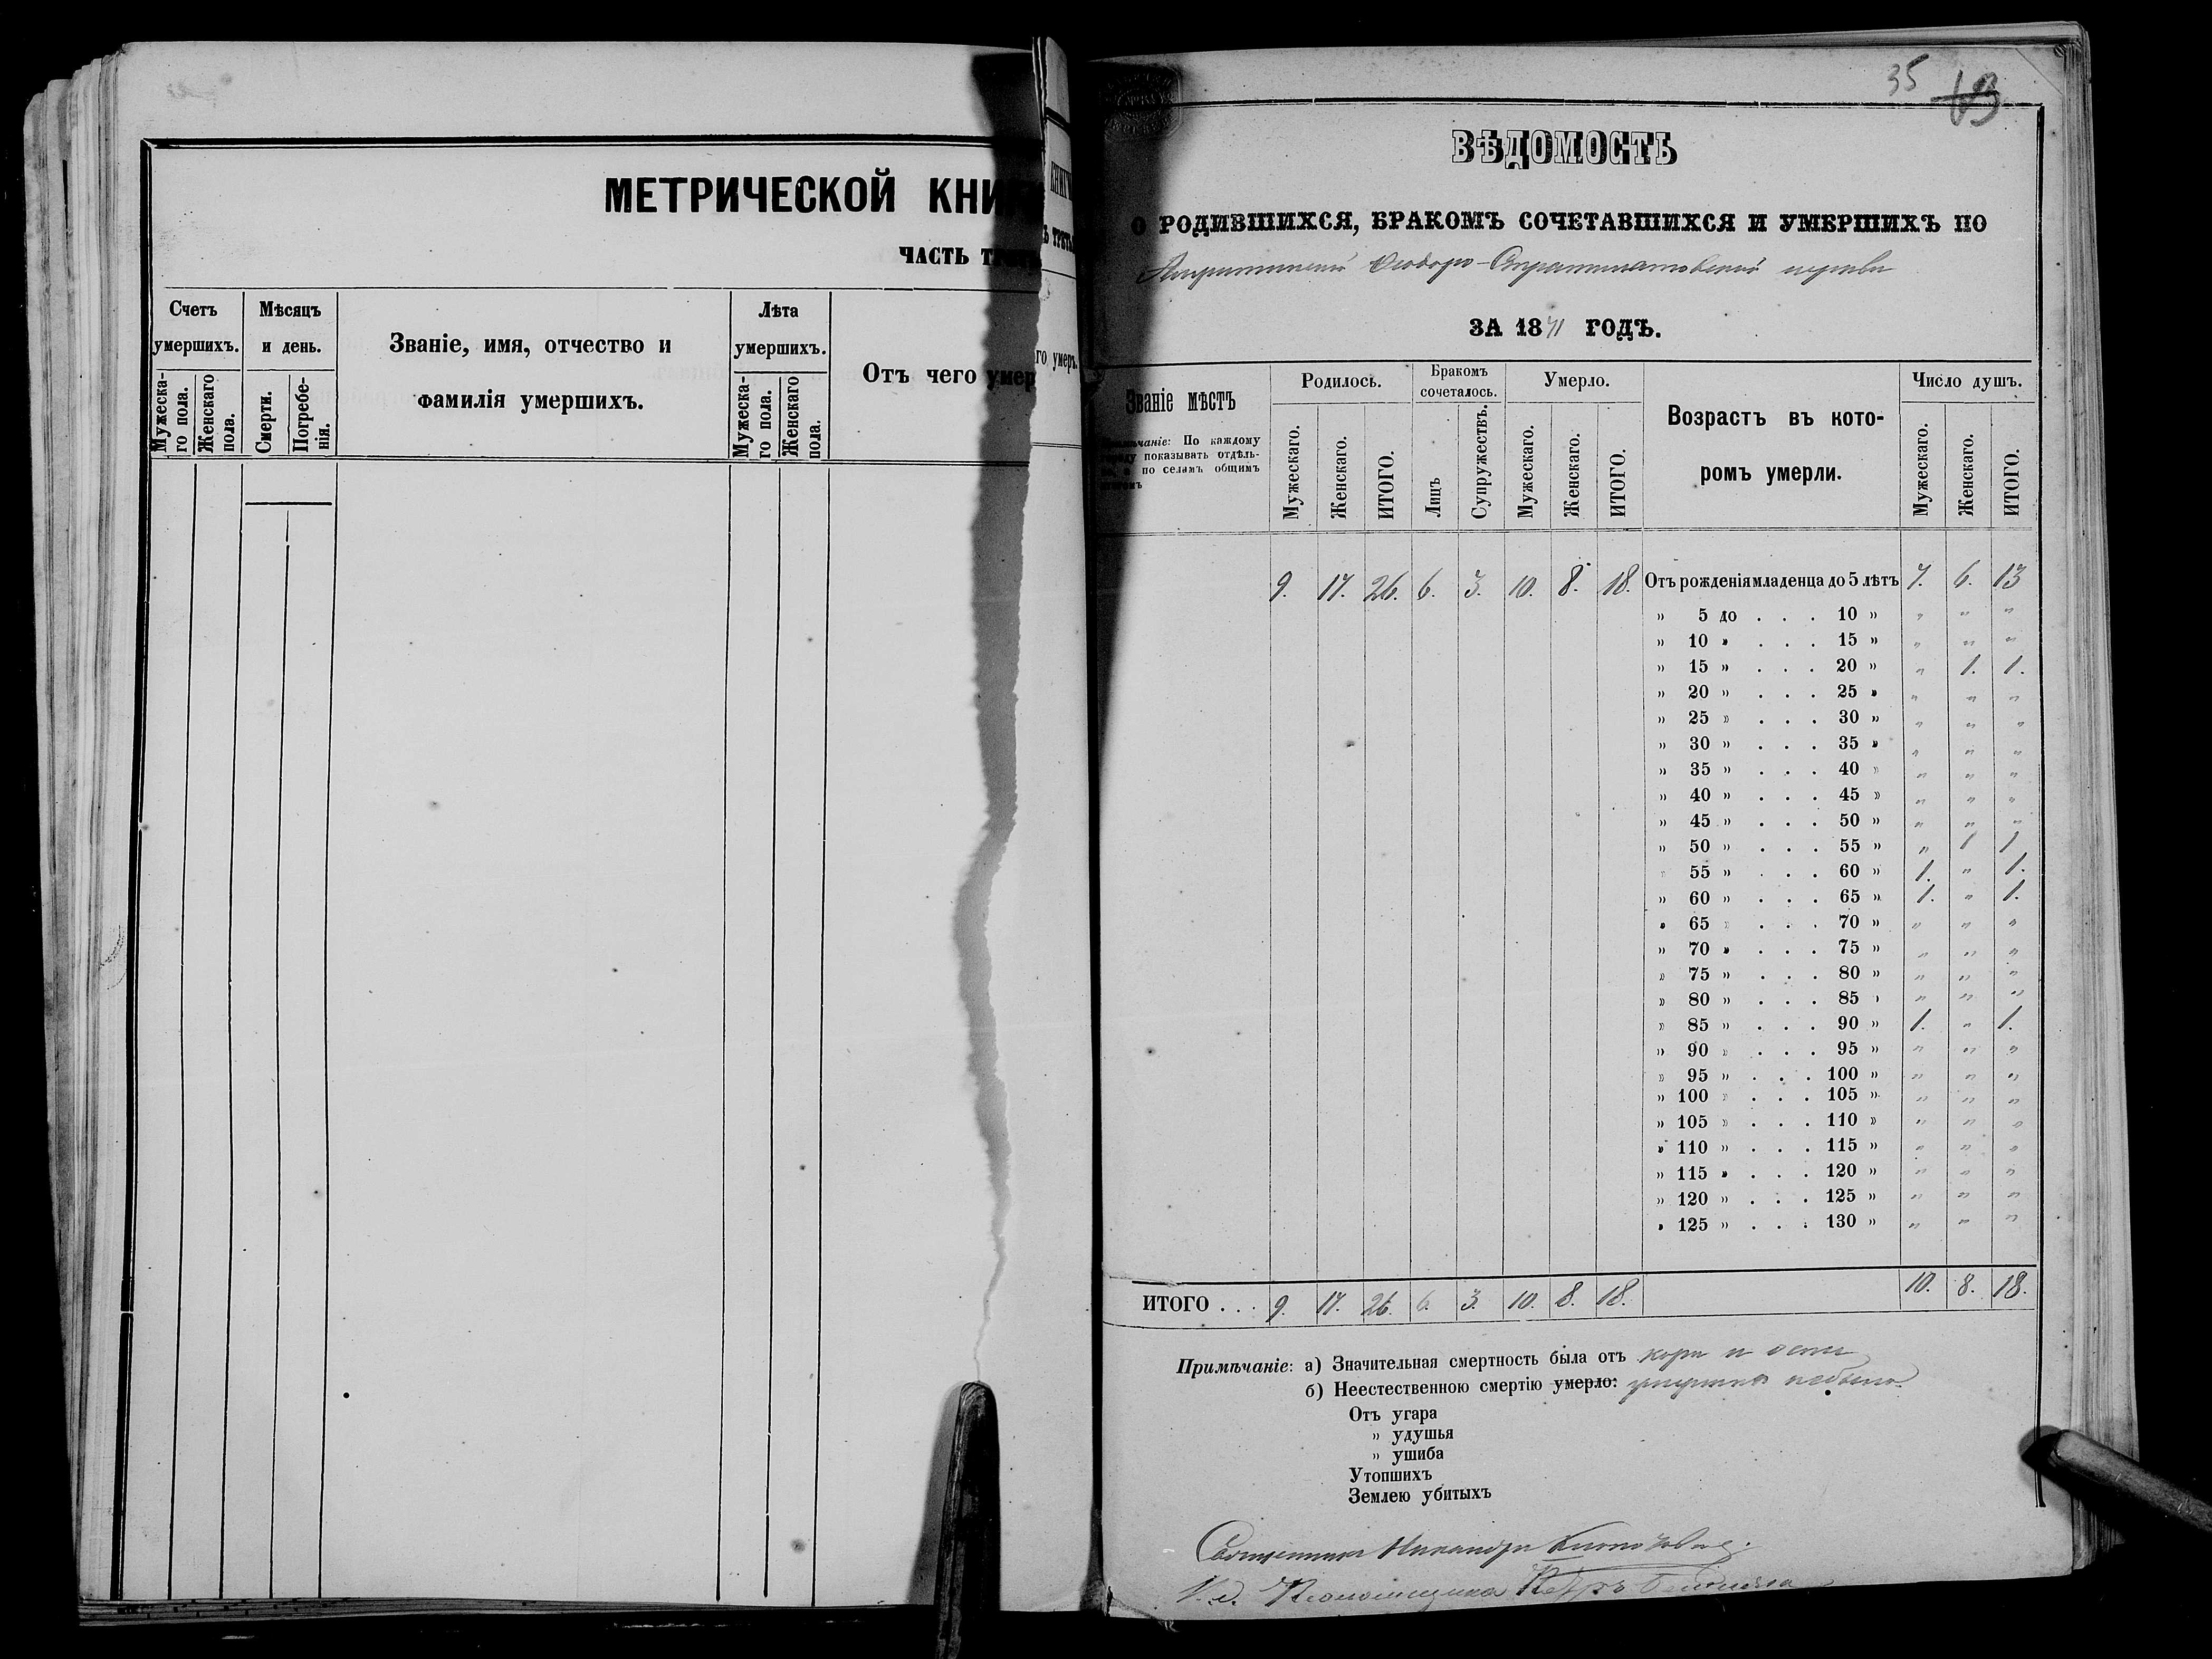 МЕТРИЧЕСКОЙ КНИГ
ЧАСТЬ ТРЕТ
Счетъ умершихъ.
Мужеска-го пола.
Женскаго пола.
Мѣсяцъ и день.
Смерти.
Погребе-нія.
Званіе, имя, отчество и
фамилія умершихъ.
Лѣта умершихъ.
Мужеска-го пола.
Женскаго пола.
Отъ чего умер
КНИГИ
ТРЕТЬ
го умеръ.
35 63
ВѢДОМОСТЬ
О РОДИВШИХСЯ, БРАКОМЪ СОЧЕТАВШИХСЯ И УМЕРШИХЪ ПО
Ѳеодоро-Стратилатовской церкви
ЗА 1871 ГОДЪ.
Званіе мѣстъ
Примѣчаніе: По каждому
показывать отдѣль-
по селамъ общимъ
Родилось.
Мужескаго. Женскаго. ИТОГО.
Бракомъ сочеталось.
Лицъ Супружествъ.
Умерло.
Мужескаго. Женскаго. ИТОГО.
Возрастъ въ кото-
ромъ умерли.
Число душъ.
Мужескаго. Женскаго. ИТОГО.
9. 17. 26. 6. 3. 10. 8. 18. Отъ рожденія младенца до 5 лѣтъ 7. 6. 13
» 5 до . . . 10 » " " "
» 10 » . . . 15 » " " "
» 15 » . . . 20 » " 1. 1.
» 20 » . . . 25 » " " "
» 25 » . . . 30 » " " "
» 30 » . . . 35 » " " "
» 35 » . . . 40 » " " "
» 40 » . . . 45 » " " "
» 45 » . . . 50 » " " "
» 50 » . . . 55 » " 1 1
» 55 » . . . 60 » 1. " 1.
» 60 » . . . 65 » 1. " 1.
» 65 » . . . 70 » " " "
» 70 » . . . 75 » " " "
» 75 » . . . 80 » " " "
» 80 » . . . 85 » " " "
» 85 » . . . 90 » 1. " 1.
» 90 » . . . 95 » " " "
» 95 » . . . 100 » " " "
» 100 » . . . 105 » " " "
» 105 » . . . 110 » " " "
» 110 » . . . 115 » " " "
» 115 » . . . 120 » " " "
» 120 » . . . 125 » " " "
» 125 » . . . 130 » " " "
ИТОГО . . . 9. 17. 26. 6. 3. 10. 8. 18. 10. 8. 18.
Примѣчаніе: а) Значительная смертность была отъ кори и оспы
б) Неестественною смертію умерло: умершихъ небыло.
Отъ угара
» удушья
» ушиба
Утопшихъ
Землею убитыхъ
Священникъ Никандръ
И. д. Псаломщика Петръ